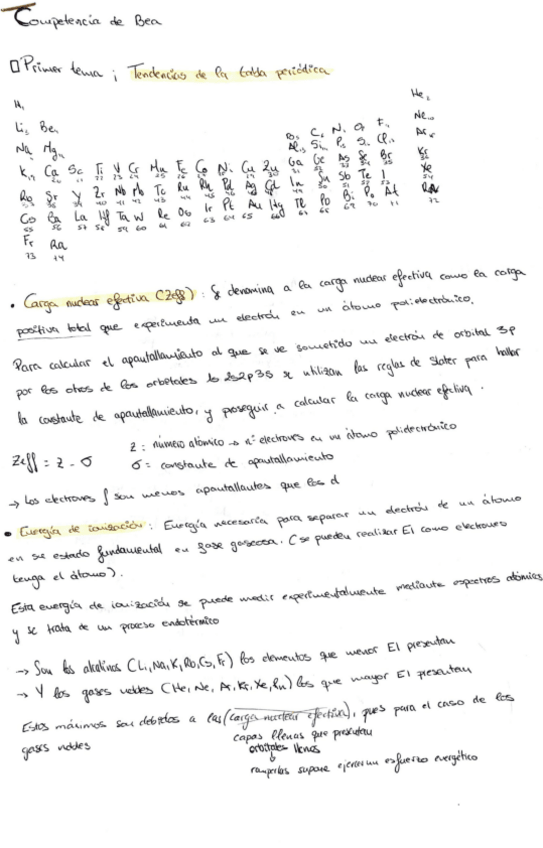 Competencia de Bea
Primer tema ; Tendencias de la tabla periódica
H1 He2
Li3 Be4 B5 C6 N7 O8 F9 Ne10
Na Mg Al13 Si14 P15 S Cl Ar
K19 Ca Sc Ti V Cr Mn Fe Co Ni Cu Zn Ga Ge As Se Br Kr
Rb Sr Y Zr Nb Mb Tc Ru Rh Pd Ag Cd In Sn Sb Te I Xe
Cs Ba La Hf Ta W Re Os Ir Pt Au Hg Tl Pb Bi Po At Rn
Fr Ra
• Carga nuclear efectiva (Zeff) : Se denomina a la carga nuclear efectiva como la carga
positiva total que experimenta un electrón en un átomo polielectrónico.
Para calcular el apantallamiento al que se ve sometido un electrón de orbital 3p
por los otros de los orbitales 1s2s2p3s se utilizan las reglas de Slater para hallar
la constante de apantallamiento, y proseguir a calcular la carga nuclear efectiva.
Zeff = Z - σ
Z : número atómico → nº electrones en un átomo polielectrónico
σ = constante de apantallamiento
→ Los electrones f son menos apantallantes que los d
• Energía de ionización : Energía necesaria para separar un electrón de un átomo
en su estado fundamental en fase gaseosa. (Se pueden realizar EI como electrones
tenga el átomo).
Esta energía de ionización se puede medir experimentalmente mediante espectros atómicos
y se trata de un proceso endotérmico
→ Son los alcalinos (Li, Na, K, Rb, Cs, Fr) los elementos que menor EI presentan
→ Y los gases nobles (He, Ne, Ar, Kr, Xe, Rn) los que mayor EI presentan
Estos máximos son debidos a las (carga nuclear efectiva), pues para el caso de los
gases nobles
capas llenas que presentan
orbitales llenos
romperlos supone ejercer un esfuerzo energético